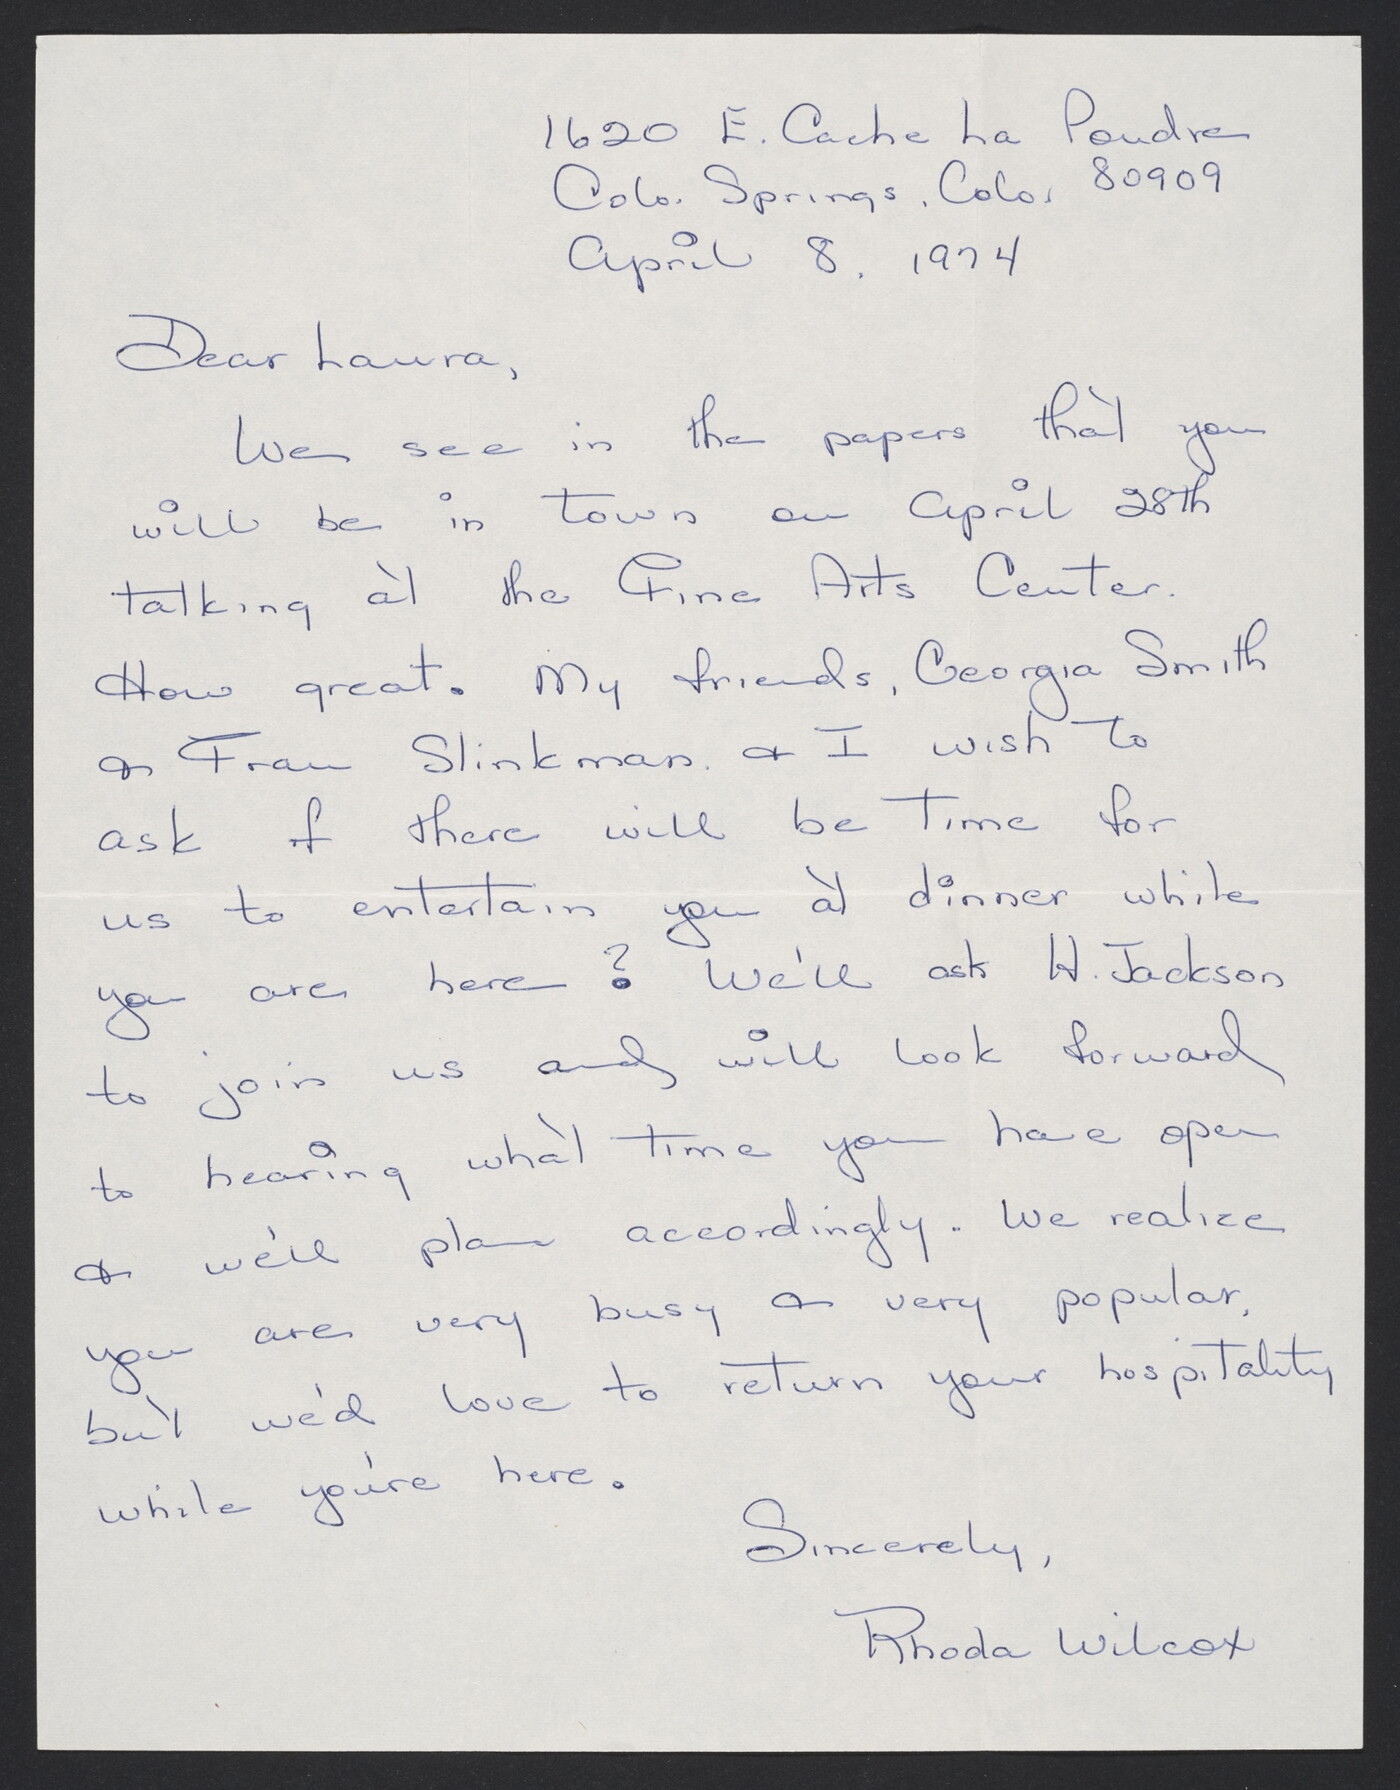 1620 E. Cache La Poudre
Colo. Springs, Colo. 80909
April 8, 1974
Dear Laura,
We see in the papers that you
will be in town on April 28th
talking at the Fine Arts Center.
How great. My friends, Georgia Smith
& Fran Slinkman & I wish to
ask if there will be time for
us to entertain you at dinner while
you are here? We'll ask W. Jackson
to join us and will look forward
to hearing what time you have open
& we'll plan accordingly. We realize
you are very busy & very popular,
but we'd love to return your hospitality
while you're here.
Sincerely,
Rhoda Wilcox